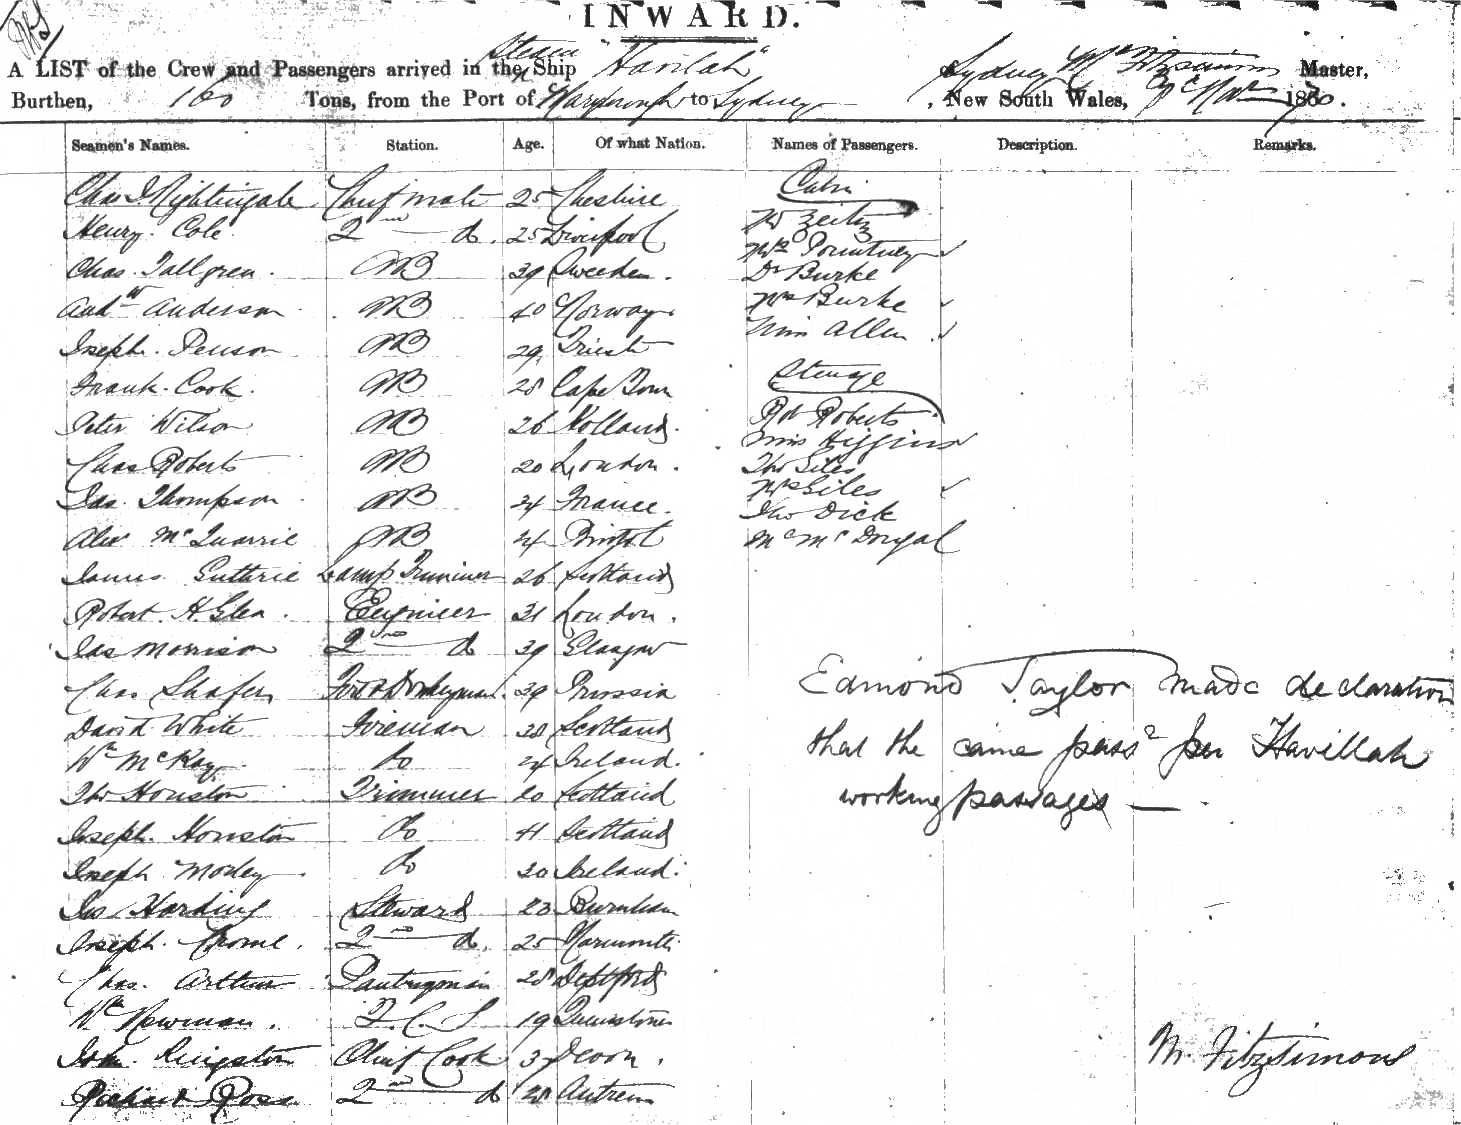 INWARD.
A LIST of the Crew and Passengers arrived in the Steam Ship "Havilah" of Sydney Mc Fitzsimons Master,
Burthen, 160 Tons, from the Port of Maryborough to Sydney, New South Wales, Nov 1870.
Seamen's Names. Station. Age. Of what Nation. Names of Passengers. Description. Remarks.
Cabin
Chas Nightingale Chief mate 25 Cheshire
Henry Cole 2nd do. 25 Liverpool Mr Zeitz
Mrs Pountney
Chas. Tallgren. AB 39 Sweeden. Dr Burke
Andw Anderson AB 40 Norway Mrs Burke
Miss Allen
Joseph. Penson AB 29 Trieste
Steerage
Frank. Cook. AB 28 Cape Town
Rob Roberts
Peter Wilson AB 26 Holland.
Miss Higgins
Chas Roberts AB 20 London. Tho Giles
Jas. Thompson AB 24 France. Mrs Giles
Tho Dick
Alex McQuarrie AB 24 Bristol Mc McDougal
James Guthrie Lamp Trimmer 26 Scotland
Robert H. Glen. Engineer 31 London.
Jas Morrison 2nd do 39 Glasgow
Chas Shafer Donkeyman 39 Prussia
Edmond Taylor made declaration
David White Fireman 28 Scotland
that he came pass per Havillah
Wm McKay Do 24 Ireland.
Tho Houston Trimmer 20 Scotland
working passages —
Joseph. Houston Do 41 Scotland
Joseph Morley Do 30 Ireland.
Jas Harding Steward 23 Burnham
Joseph. Crome. 2nd do. 25 Yarmouth
Chas. Arthur Pantryman 28 Deptford
Wm Newman. F.C.S 19 Queenstown
John. Kingston Chief Cook 37 Devon.
M. Fitzsimons
Richard Ross 2nd do 28 Antrim